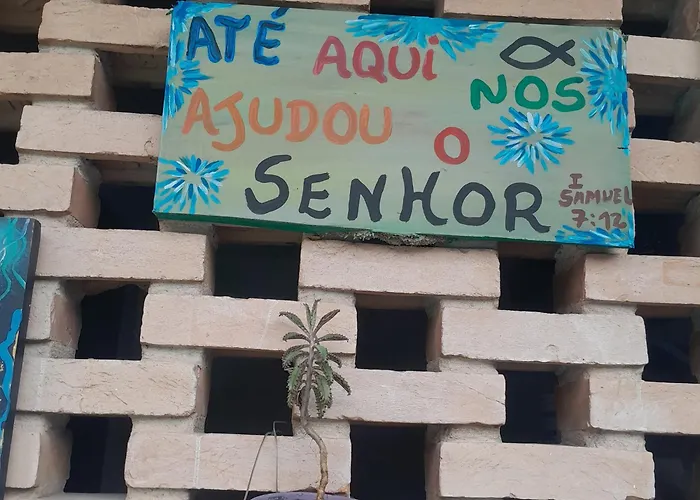 ATÉ AQUi NOS
AJUDOU O
SENHOR
I
SAMUEL
7:12